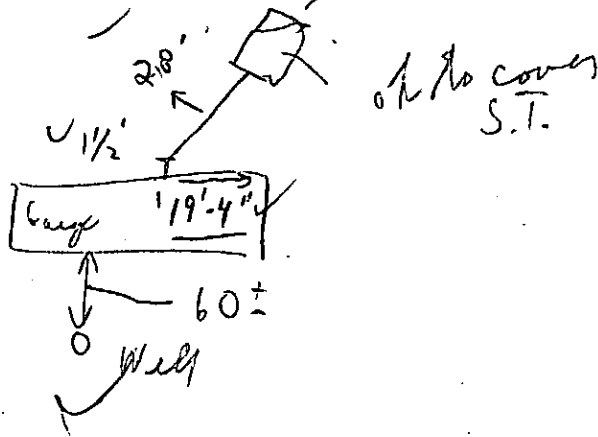 28'
ok to cover
S.T.
1 1/2'
19'-4"
60 ±
Well